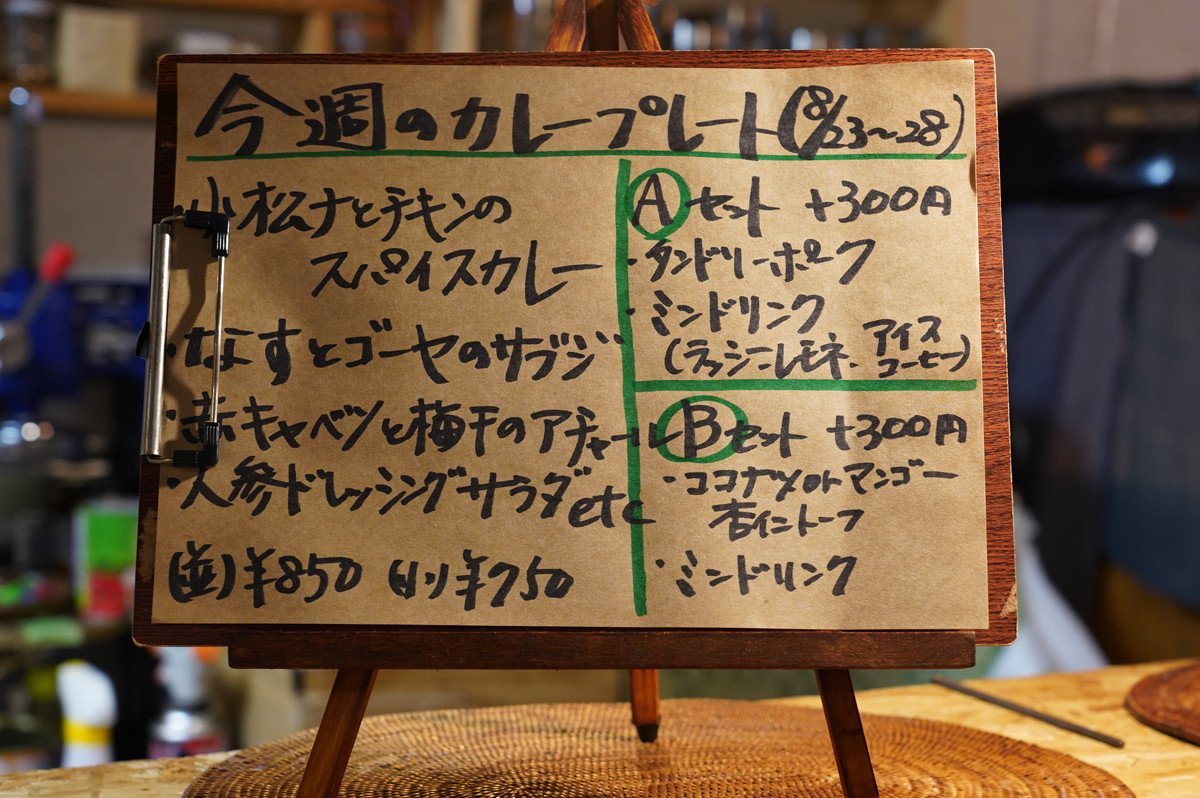 今週のカレープレート(8/23〜28)
・小松ナとチキンの
スパイスカレー
・なすとゴーヤのサブジ
・赤キャベツと梅干のアチャール
・人参ドレッシングサラダetc
(並)¥850 (小)¥750
Aセット +300円
・タンドリーポーク
・ミンドリンク
(ラッシー・レモネ・アイスコーヒー)
Bセット +300円
・ココナツorマンゴー
杏仁トーフ
・ミンドリンク